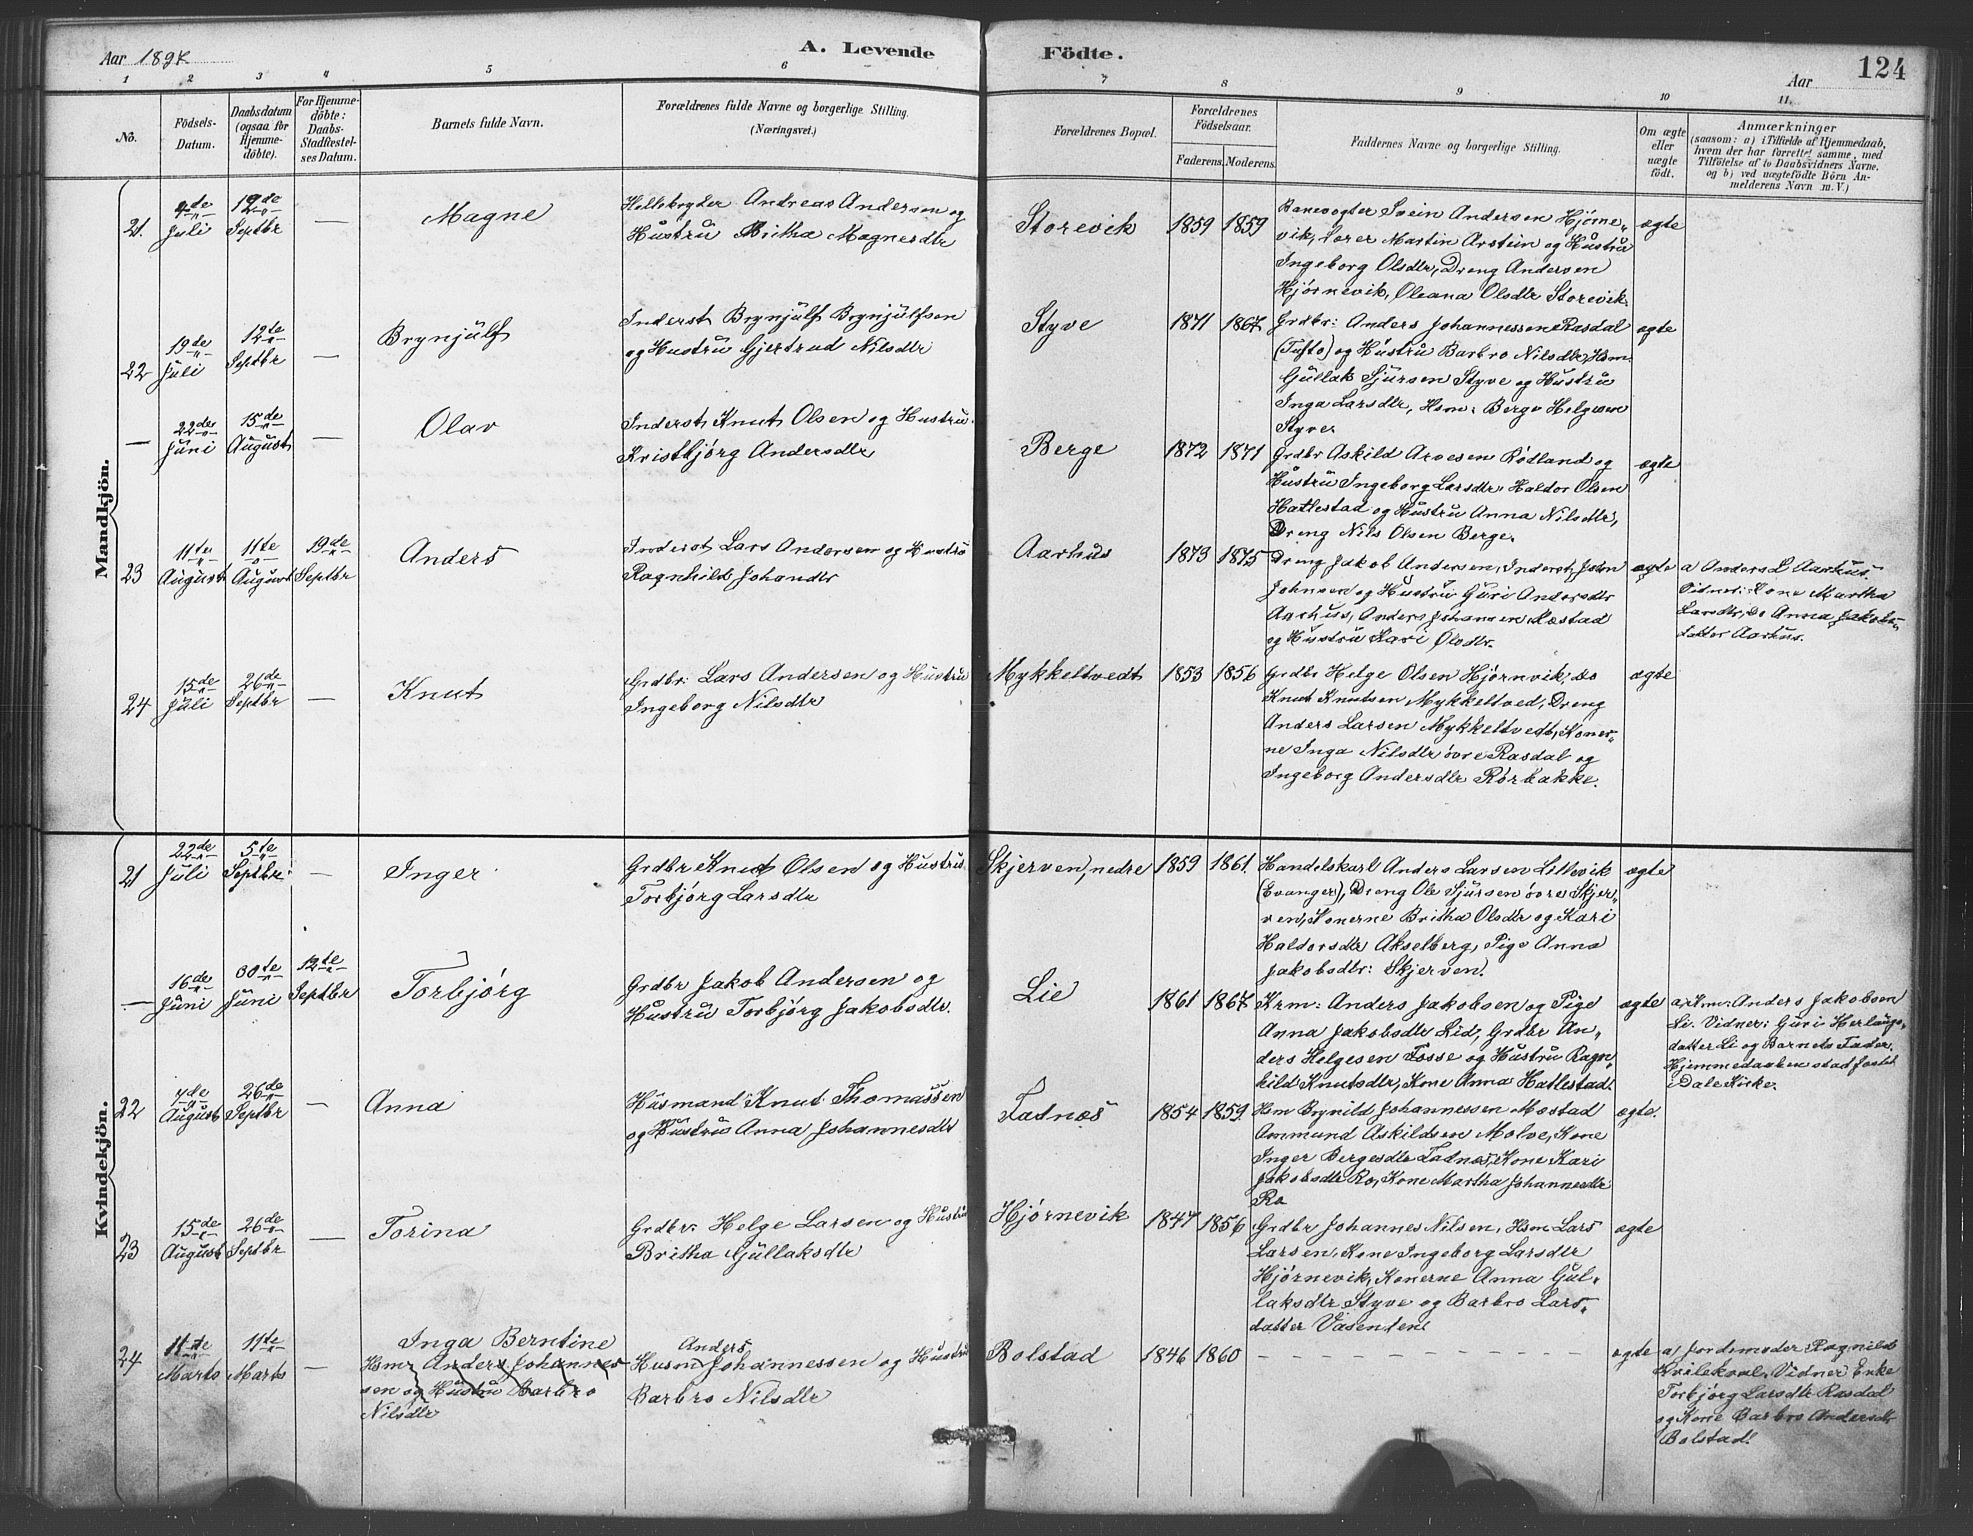 Aar 1897
A. Levende
Födte.
Aar
124
1 2 3 4 5 6 7 8 9 10 11.
No.
Födsels-
Datum.
Daabsdatum
(ogsaa for
Hjemme-
döbte).
For Hjemme-
döbte:
Daabs-
Stadfæstel-
ses Datum.
Barnets fulde Navn.
Forældrenes fulde Navne og borgerlige Stilling.
(Næringsvei.)
Forældrenes Bopæl.
Forældrenes
Födselsaar.
Faderens. Moderens.
Faddernes Navne og borgerlige Stilling.
Om ægte
eller
uægte
födt.
Anmærkninger
(saasom: a) i Tilfælde af Hjemmedaab,
hvem der har forrettet samme, med
Tilföielse af to Daabsvidners Navne.
og b) ved uægtefödte Börn An-
melderens Navn m. V.)
Mandkjön.
21.
Juli
19de
Septbr
—
Magne
Andreas Andersen og
Hustru Britha Magnesdtr
Storevik
1859 1859
Banevogter Svein Andersen Hjørne-
vik, Lærer Martin Arstein og Hustru
Ingeborg Olsdtr, Dreng Andersen
Hjørnevik, Oleana Olsdtr Storevik.
ægte
22
19de
Juli
12te
Septbr
—
Brynjulf
Inderst Brynjulf Brynjulfsen
og Hustru Gjertrud Nilsdtr
Styve
1871 1867
Grdbr: Anders Johannessen Rasdal
(Tufto) og Hustru Barbro Nilsdtr, Hsm.
Gullak Sjursen Styve og Hustru
Inga Larsdtr, Hsm: Berge Helgesen
Styve
ægte
—
22de
Juni
15de
August
—
Olav
Inderst Knut Olsen og Hustru
Kristbjørg Andersdtr
Berge
1872 1871
Grdbr Askild Arvesen Rødland og
Hustru Ingeborg Larsdtr, Haldor Olsen
Hatlestad og Hustru Anna Nilsdtr,
Dreng Nils Olsen Berge.
ægte
23
11te
August
11te
August
19de
Septbr
Anders
Inderst Lars Andersen og Hustru
Ragnhild Johandtr
Aarhus
1873 1875
Dreng Jakob Andersen, Inderst John
Johnsen og Hustru Guri Andersdtr
Aarhuss, Anders Johansen Kostad
og Hustru Kari Olsdtr.
ægte
a Anders L Aarhus.
Vidner: Kone Martha
Larsdtr, Do Anna Jakobs-
datter Aarhus.
24
15de
Juli
26de
Septbr
—
Knut
Grdbr: Lars Andersen og Hustru
Ingeborg Nilsdtr
Mykkeltvedt
1853 1856
Grdbr Helge Olsen Hjørnvik, do
Knut Knutsen Mykkeltved, Dreng
Anders Larsen Mykkeltvedt, Koner-
ne Inga Nilsdtr övre Rasdal og
Ingeborg Andersdtr Rörbakke.
ægte
Kvindekjön.
21
22de
Juli
5te
Septbr
—
Inger
Grdbr Knut Olsen og Hustru
Torbjørg Larsdtr
Skjerven, nedre
1859 1861.
Handelskarl Anders Larsen Litlevik
(Evanger), Dreng Ole Sjursen övre Skjer-
ven, Konerne Britha Olsdtr og Kari
Haldorsdtr Akselberg, Pige Anna
Jakobsdtr: Skjerven.
ægte
—
16de
Juni
30te
Juni
12te
Septbr
Torbjørg
Grdbr Jakob Andersen og
Hustru Torbjørg Jakobsdtr.
Lie
1861 1867
Krm: Anders Jakobsen og Pige
Anna Jakobsdtr Lid, Grdbr An-
ders Helgesen Fosse og Hustru Ragn-
hild Knutsdtr, Kone Anna Hatlestad
ægte
a, Krm: Anders Jakobsen
Li. Vidner: Guri Herlaugs-
datter Li og Barnets Fader.
Hjemmedaaben stadfæstet
i Dale Kirke.
22
4de
August
26de
Septbr
—
Anna
Husmand Knut Thomassen
og Hustru Anna Johannesdtr
Fadnes
1854 1859
Hsm Brynild Johannessen Mostad
Ammund Askildsen Molve, Kone
Inger Bergesdtr Fadnes, Kone Kari
Jakobsdtr Ro, Kone Martha Johannesdtr
Ro
ægte.
23
15de
August
26de
Septbr
—
Torina
Grdbr: Helge Larsen og Hustru
Britha Gullaksdtr
Hjørnevik
1847 1856
Grdbr Johannes Nilsen, Hsm Lars
Larsen, Kone Ingeborg Larsdtr
Hjørnevik, Konerne Anna Gul-
laksdtr Styve og Barbro Lars-
datter Vasenden
ægte
24
11te
Marts
11te
Marts
—
Inga Berntine
Hsm: Anders Johannes-
sen og Hustru Barbro
Nilsdtr
Anders
Husm Johannessen og Hustru
Barbro Nilsdtr
Bolstad
1846 1860
ægte
a, Jordemoder Ragnild
Kvilekval. Vidner Enke
Torbjørg Larsdtr Rasdal
og Kone Barbro Andersdtr
Bolstad.